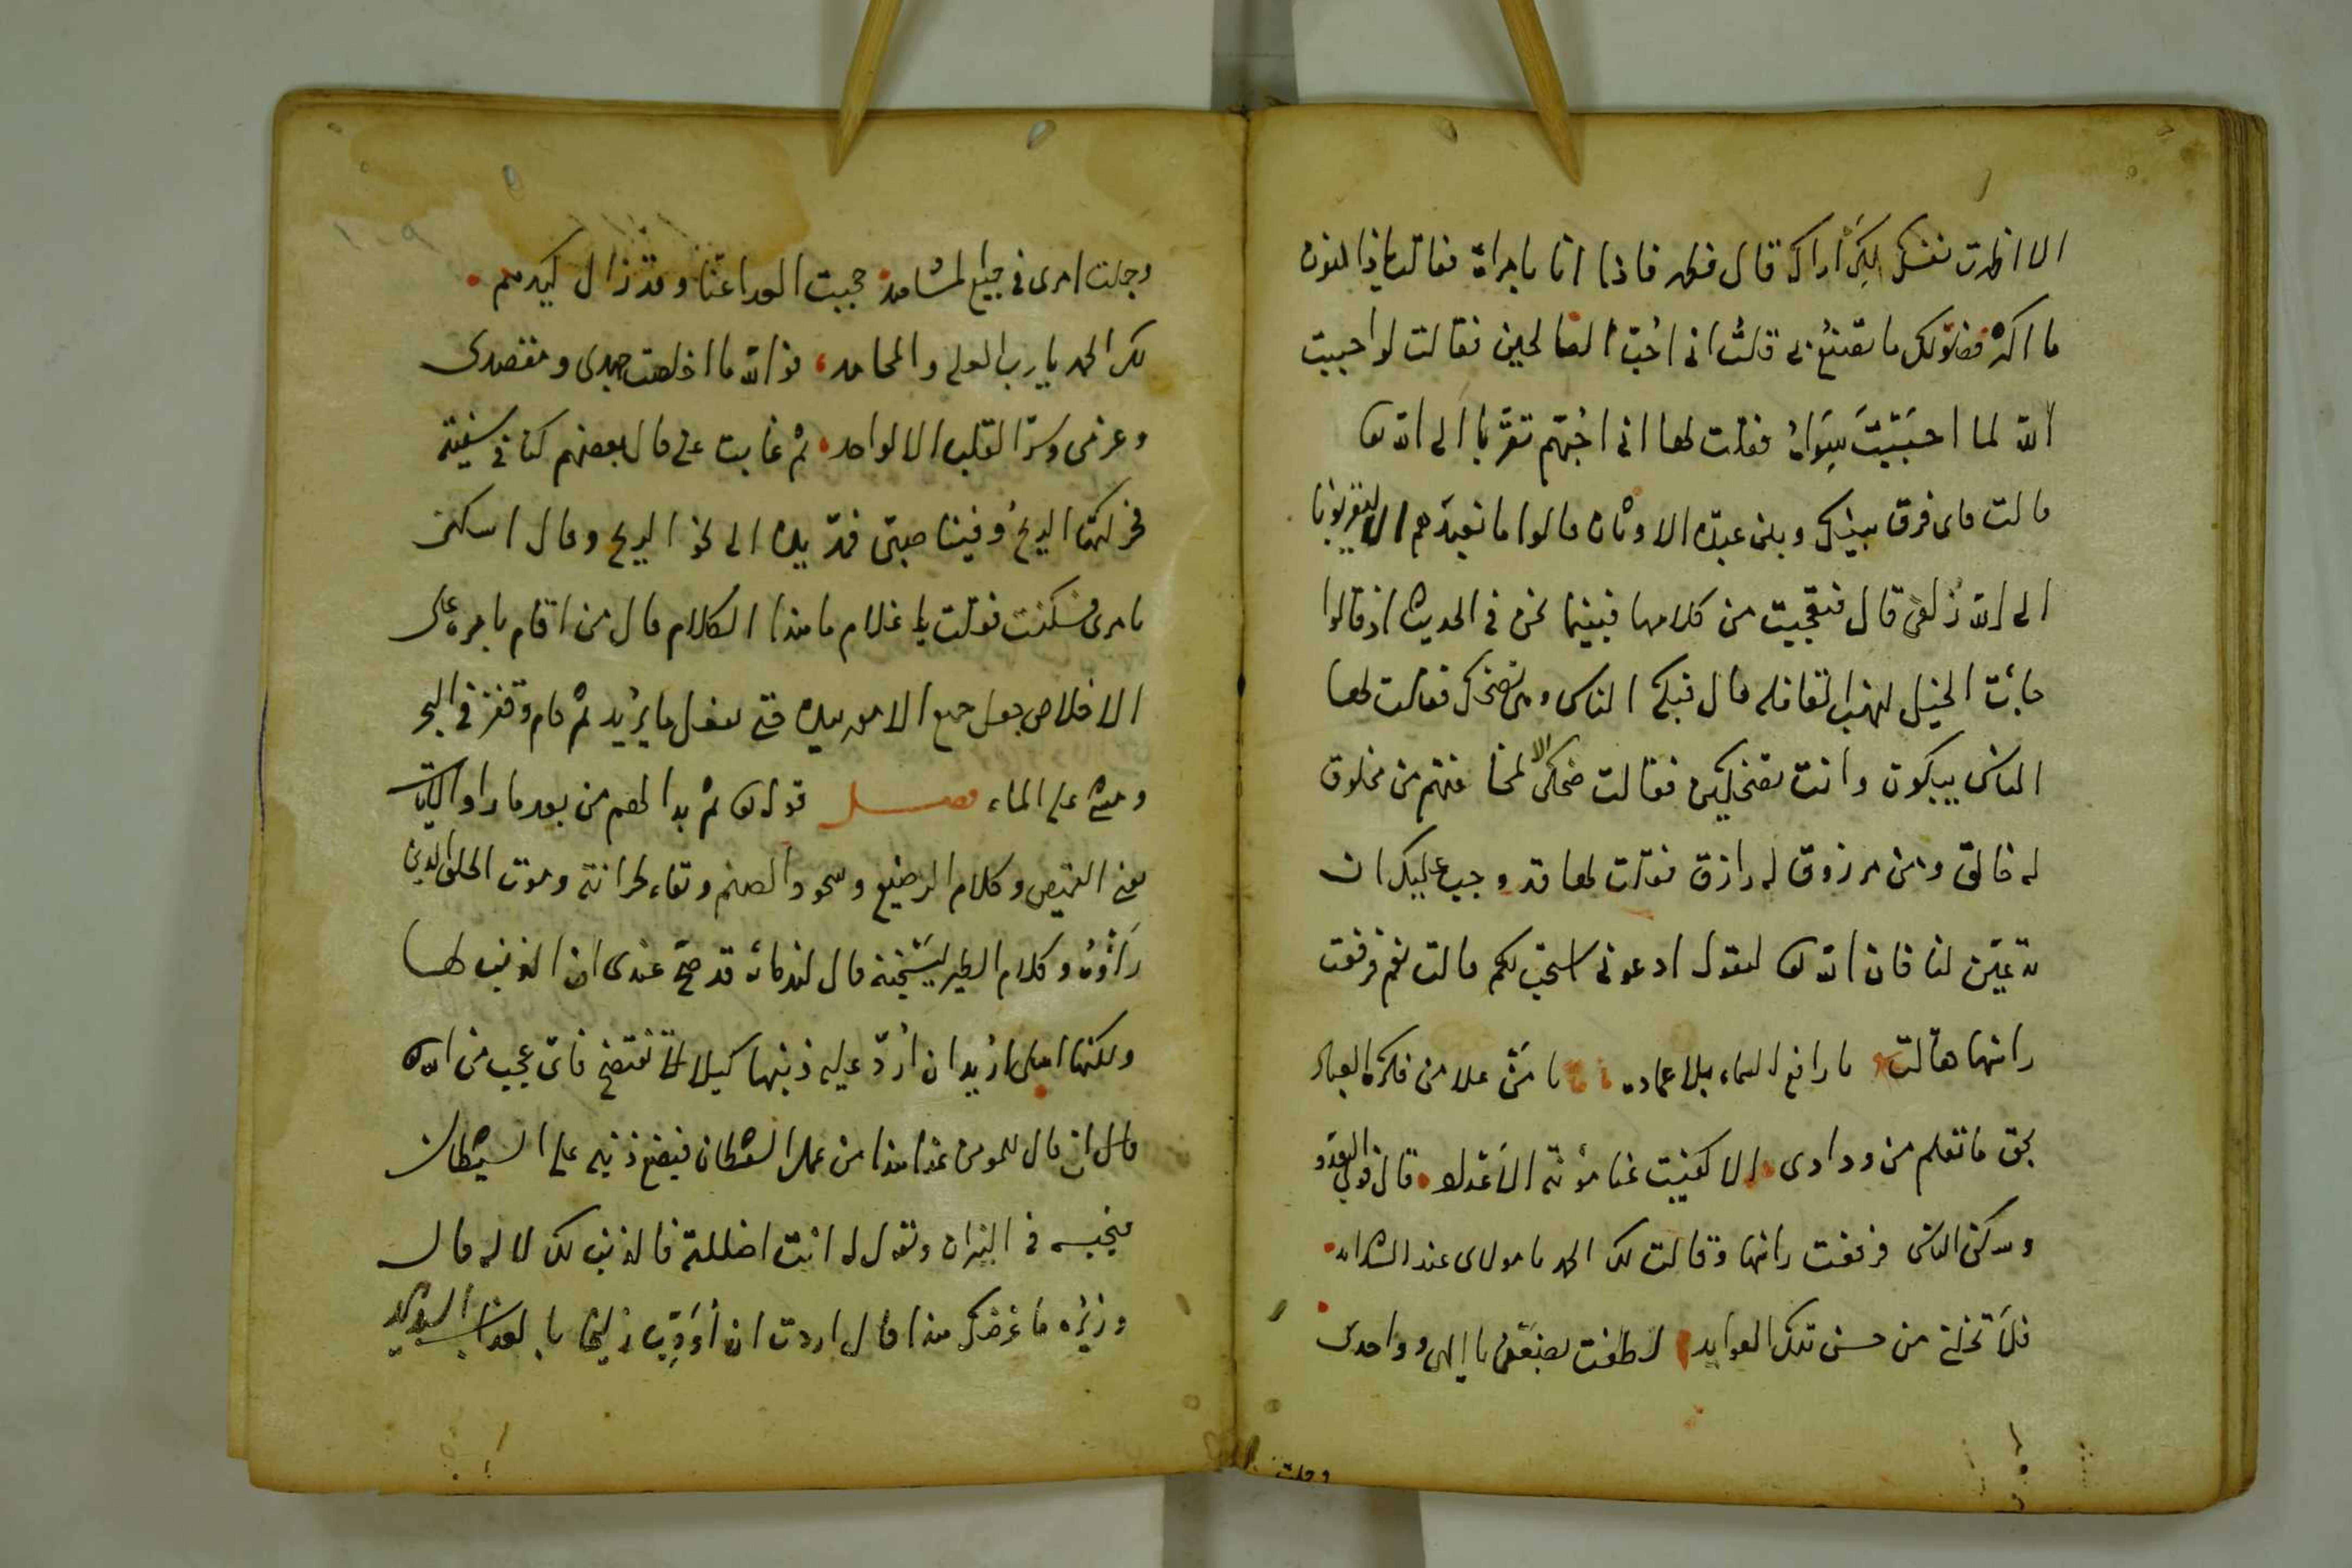 الا اظهرت نفسك لكى اراك قال فظهر فاذا انا بامراة فقالت يا ذا النون
ما اكثر فضولك ما تصنع بى قلت انى احب الصالحين فقالت لو احببت
الله لما احببت سواه فقلت لها انى احبهم تقربا الى الله تعا
قالت فاى فرق بينك وبين عبدة الاوثان قالوا ما نعبدهم الا ليقربونا
الى الله زلفى قال فتعجبت من كلامها فبينما نحن فى الحديث اذ قالوا
جاءت الخيل لنهب القافلة قال فبكى الناس وهى تضحك فقلت لها
الناس يبكون وانت تضحكين فقالت ضحكى لمخافتهم من مخلوق
له خالق ومن مرزوق له رازق فقلت لها قد وجب عليك ان
تدعين لنا فان الله تعا يقول ادعونى استجب لكم قالت نعم فرفعت
راسها وقالت يا رافع السماء بلا عماد يا من علا من فكرة العباد
بحق ما تعلم من ودادى الا كفيت عنا مؤنة الاعداء قال فولى العدو
وسكن الناس فرفعت راسها وقالت لك الحمد يا مولاى عند الشدايد
فلا تخلنى من حسن تلك العوايد لطفت بضعفى يا الهى وواحدى
وجلت
وجلت امرى فى جميع المشاهد حجبت العدا عنا وقد زال كيدهم
لك الحمد يا رب العلى والمحامد فوالله ما اخلصت جهدى ومقصدى
وعزمى وسر القلب الا لواحد ثم غابت عنى قال بعضهم كنا فى سفينة
فحركتها الريح وفينا صبى فمد يده الى نحو الريح وقال اسكن
يا مرى فسكنت فقلت يا غلام ما هذا الكلام قال من اقام بامره على
الاخلاص جعل جميع الامور بيده حتى يفعل ما يريد ثم قام وقفز فى البحر
ومشى على الماء فصل قوله تعا ثم بدا لهم من بعد ما راوا الايات
يعنى القميص وكلام الرضيع وسجود الصنم وبقاء الحزانة وموت الخلق الذين
راؤه وكلام الطير ليسجننه قال لندمائه قد صح عندى ان الذنب لها
ولكنها اهلى اريد ان ارد عليه ذنبها كيلا تفتضح فاى عجب من الله
قال ان قال للمومن غدا هذا من عمل الشيطان فيضع ذنبه على الشيطان
فيحبسه فى النيران ويقول له انت اضللته فالذنب لك لا له قال
وزيره ما غرضك هذا قال اردت ان اؤدب زليخا بالعذاب الشديد